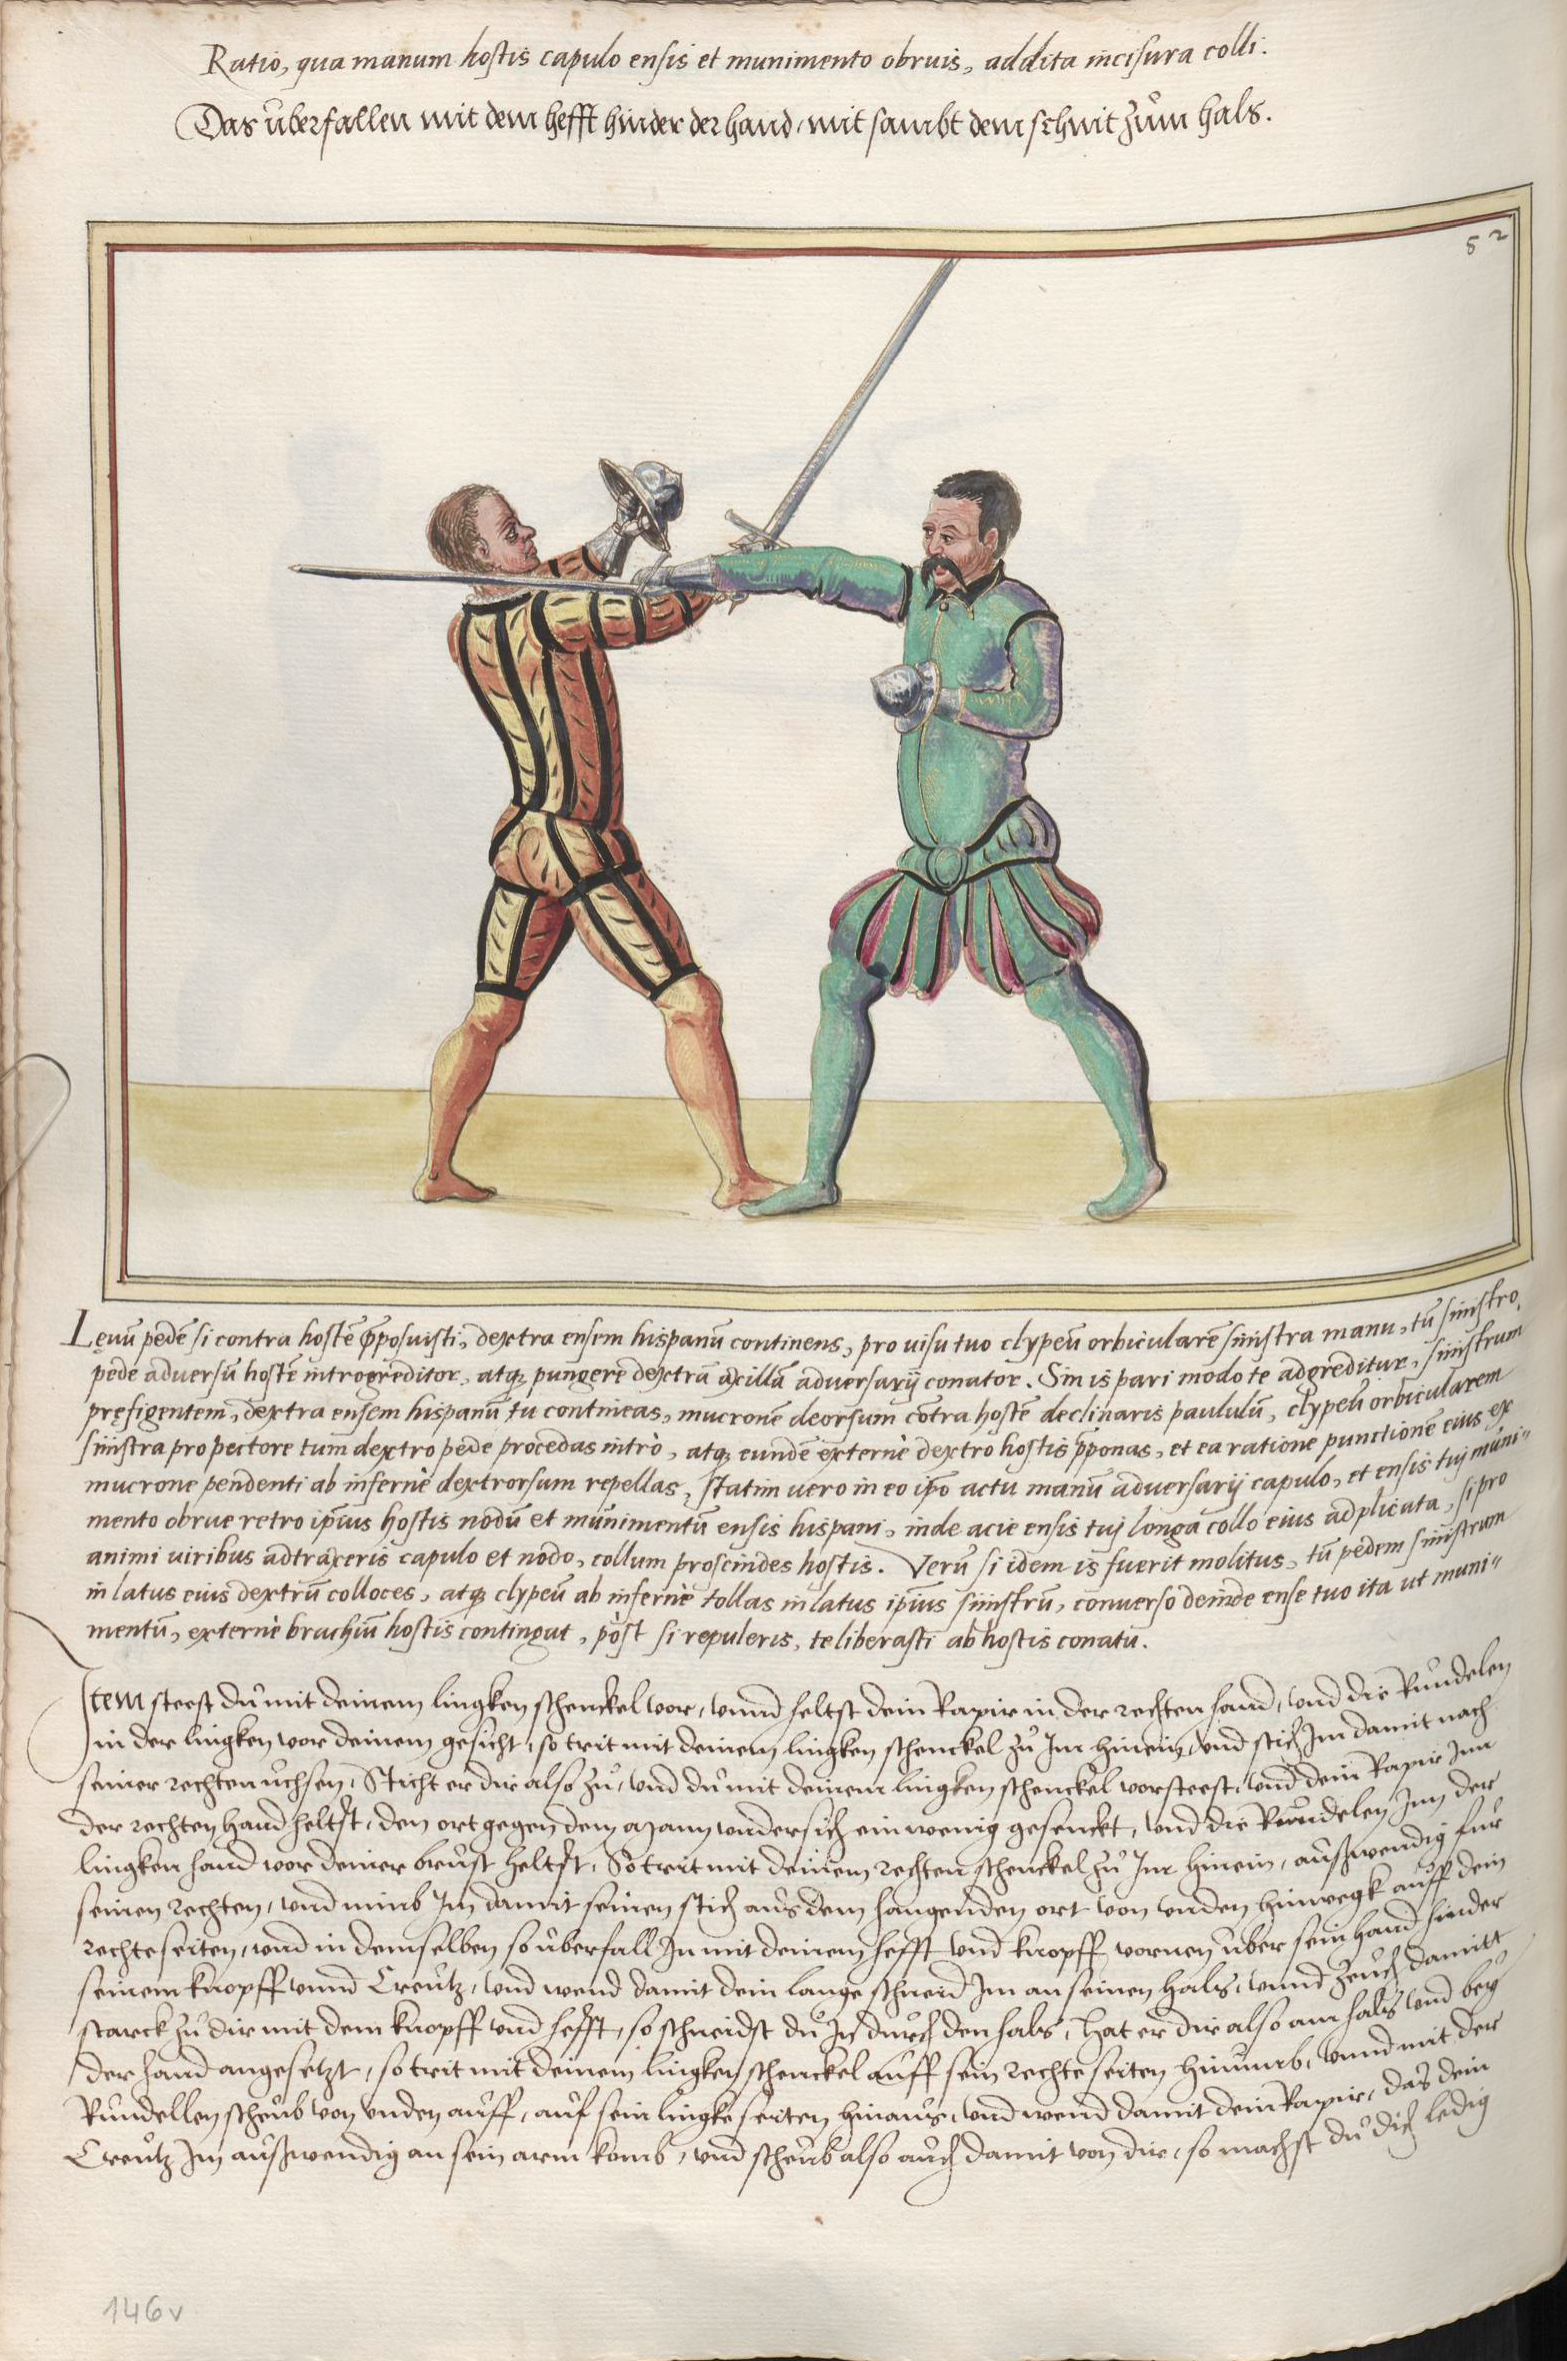 Ratio, qua manum hostis capulo ensis et munimento obruis, addita incisura colli.
Das überfallen mit dem hefft hinder der hand, mit sambt dem schnit zům hals.
82
Lęuū pedē si contra hostē p̄posuisti, dextra ensem hispanū continens, pro uisu tuo clypeū orbicularē sinistra manu, tū sinistro
pede aduersū hostē introgreditor, atq; pungere dextrā axillā aduersarij conator. Sin is pari modo te adgreditur, sinistrum
pręfigentem, dextra ensem hispanū tu contineas, mucronē deorsum cōtra hostē declinaris paululū, clypeū orbicularem
sinistra pro pectore tum dextro pede procedas intrò, atq; eundē externè dextro hostis p̄ponas, et ea ratione punctionē eius ex
mucrone pendenti ab infernè dextrorsum repellas, statim uero in eo ip̄o actu manū aduersarij capulo, et ensis tuj muni=
mento obrue retro ip̄ius hostis nodū et munimentū ensis hispani, inde acie ensis tuj longa collo eius adplicata, si pro
animi uiribus adtraxeris capulo et nodo, collum proscindes hostis. Verū si idem is fuerit molitus, tū pedem sinistrum
in latus eius dextrū colloces, atq; clypeū ab infernè tollas in latus ip̄ius sinistrū, conuerso deinde ense tuo ita ut muni=
mentū, externè brachiū hostis contingat, pòst si repuleris, te liberasti ab hostis conatu.
Item steest dů mit deinem lingken schenckel vor, vnnd heltst dein Rapir in der rechten hand, vnd die Růndelen
in der lingken vor deinem gesicht, so trit mit deinem lingken schenckel zů Im hinein, vnd stich Im damit nach
seiner rechten ůchsen, Sticht er dir also zů, vnd dů mit deinem lingken schenckel vorsteest, vnd dein Rapir Inn
der rechten hand heltst, den ort gegen dem Mann vndersich ein wenig gesenckt, vnd die Růndelen Inn der
lingken hand vor deiner brůst heltst, So trit mit deinem rechten schenckel zů Im hinein, aůßwendig für
seinen rechten, vnd nimb Im damit seinen stich aůs dem hangenden ort von vnden hinwegk aůff dein
rechte seiten, vnd in demselben so ůberfall In mit deinem hefft vnd knopff vornen ůber sein hand hinder
seinem knopff vnnd Creůtz, vnd wend damit dein lange schneid Im an seinen hals, vnnd zeůch damitt
starck zů dir mit dem knopff vnd hefft, so schneidst dů In důrch den hals, hat er dir also am hals vnd bey
der hand angesetzt, so trit mit deinem lingken schenckel aůff sein rechte seiten hinůmb, vnnd mit der
Růndellen scheůb von vnden aůff, aůf sein lingke seiten hinaůs, vnd wend damit dein Rapir, das dein
Creůtz Im aůßwendig an sein arm komb, vnd scheůb also aůch damit von dir, so machst dů dich ledig
146v